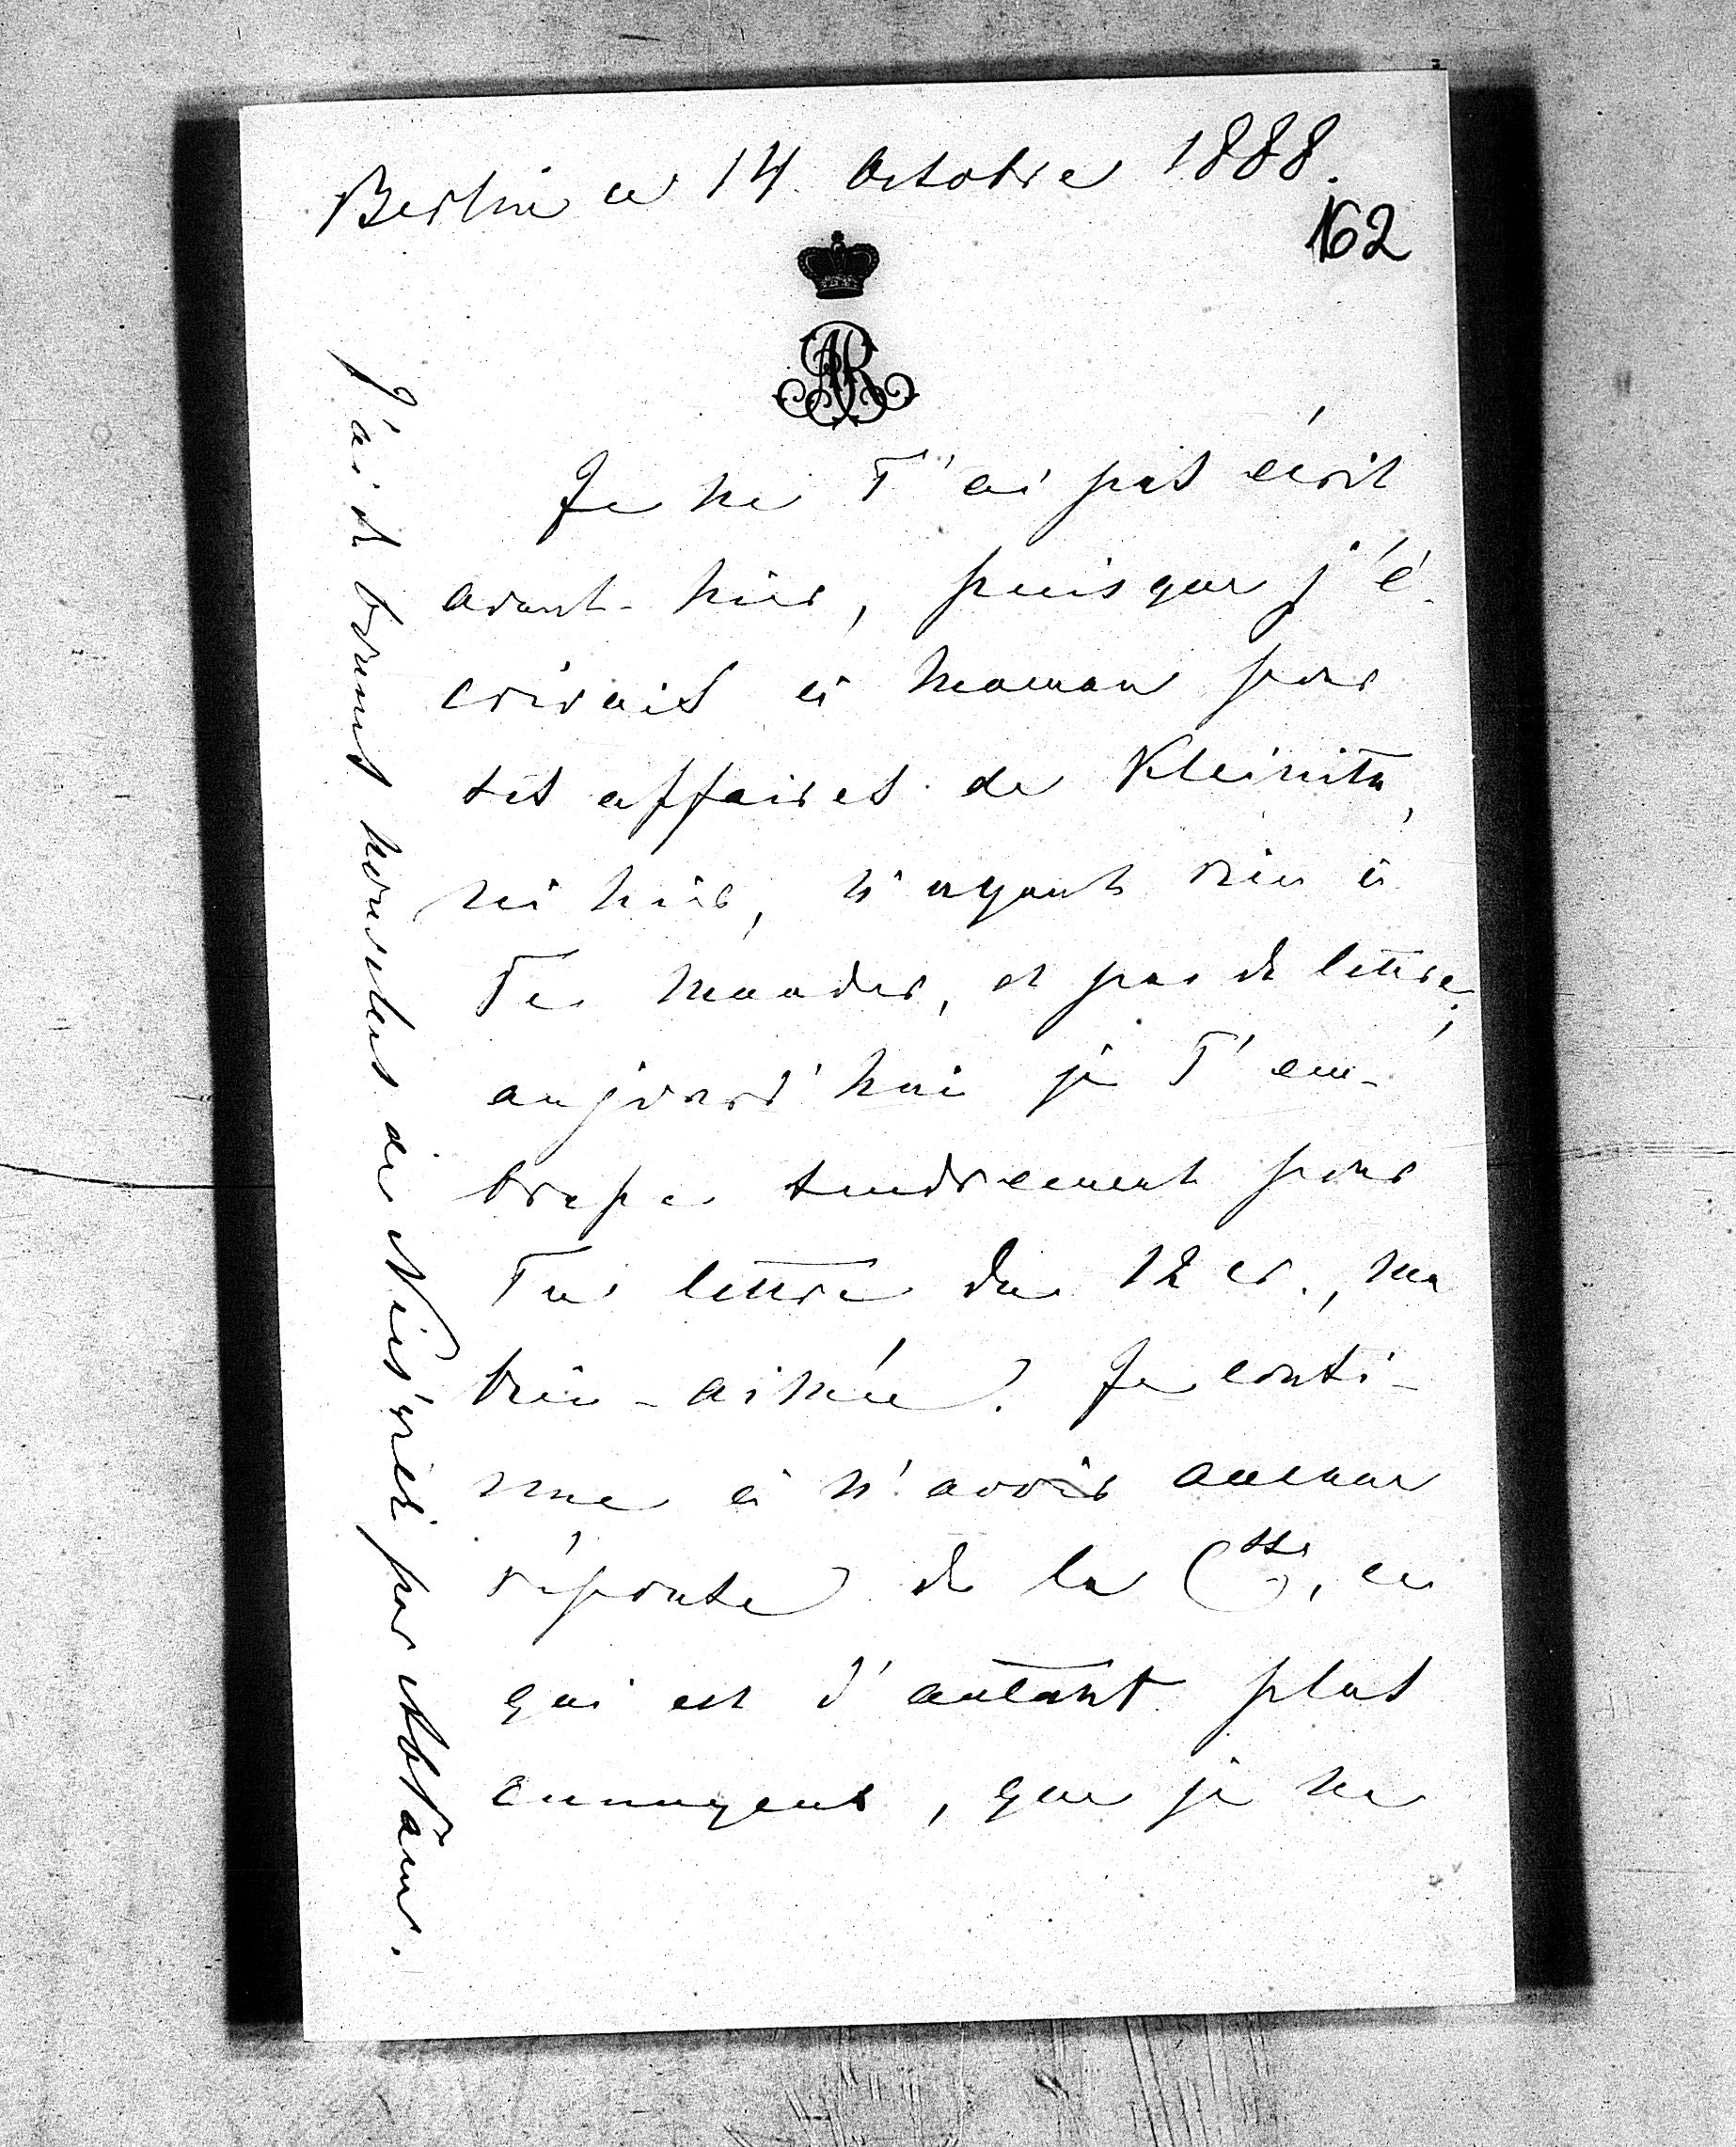 Berlin ce 14. Octobre 1888.
162
AR
Je ne T'ai pas écrit
avant-hier, puisque j'é-
crivais à Maman pour
ses affaires de Kleinitz,
ni hier, n'ayant rien à
Te mander, et pas de lettre;
aujourd'hui je T'em-
brasse tendrement pour
Ta lettre du 12 cr., ma
bien-aimée! Je conti-
nue à n'avoir aucune
réponse de la Csse, ce
qui est d'autant plus
ennuyeux, que je ne
J'ai de bonnes nouvelles de par